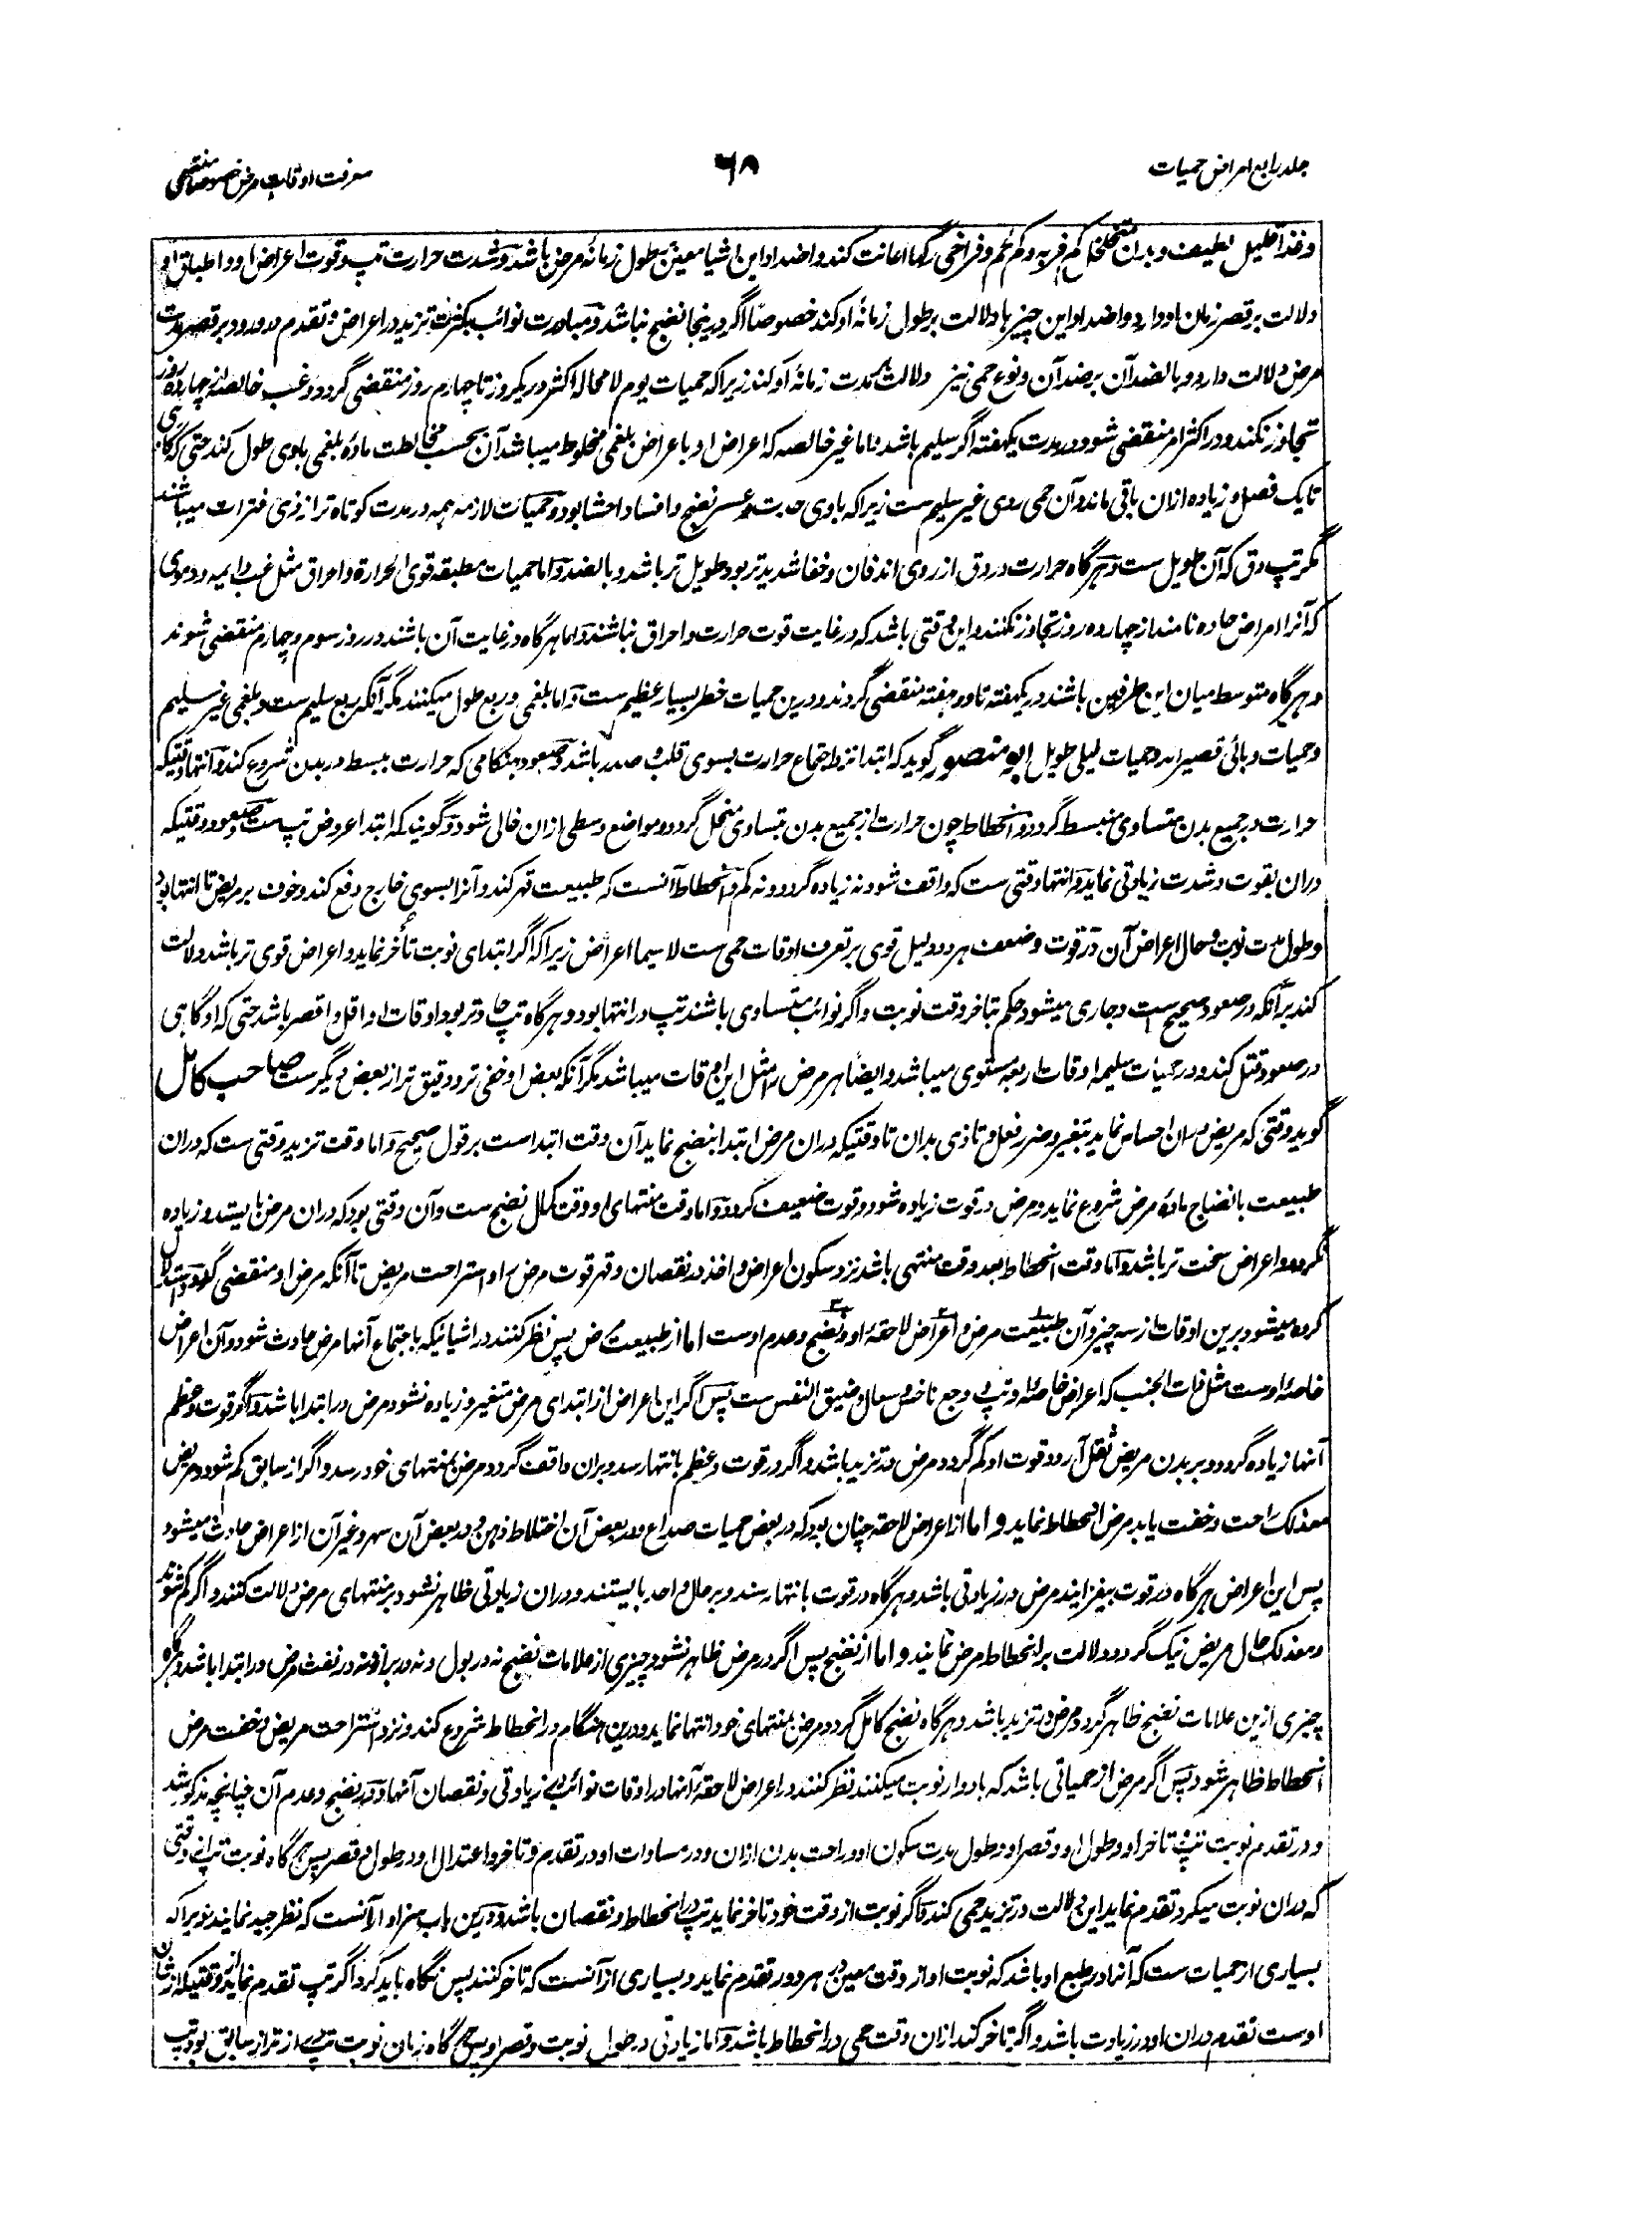 جلد رابع امراض حمیات
٦٨
معرفت اوقات مرض خصوصا منتهی
و غذا قلیل لطیف و بدان متخلخل کم فربه و کم لحم و فراخی رگها اعانت کند و اضداد این اشیا معین بر طول زمانهٔ مرض باشد و شدت حرارت تپ و قوت اعراض او و اطباق او
دلالت بر قصر زمان او دارد و اضداد این چیزها دلالت بر طول زمانهٔ او کند خصوصاً اگر در ینجا نضج نباشد و مبادرت نوائب بکثرت تزید در اعراض و تقدم دور دور بر قصر مدت
مرض دلالت دارد و بالضد آن بر ضد آن و نوع حمی نیز دلالت بر مدت زمانهٔ او کند زیرا که حمیات یوم لا محاله اکثر در یکروز تا چهارم روز منقضی گردد و غب خالصه از چهارده روز
تجاوز نکند و در اکثر امر منقضی شود در مدت یکهفته اگر سلیم باشد و اما غیر خالصه که اعراض او با عراض بلغمی مخلوط میباشد آن بحسب مخالطت مادهٔ بلغمی باوی طول کند حتی که گاهی
تا یک فصل و زیاده ازان باقی ماند و آن حمی ردی غیر سلیم ست زیرا که باوی حدت و عسر نضج و افساد احشا بود و حمیات لازمه همه در مدت کوتاه تر از ذی فترات میباشند
مگر تپ دق که آن طویل ست و هرگاه حرارت در دق از روی اندفان و خفا شدید تر بود طویل تر باشد و بالضد و اما حمیات مطبقه قوی الحرارة و احراق مثل غب دایمه و دموی
که آنرا امراض حاده نامند از چهارده روز تجاوز نکنند و این وقتی باشد که در غایت قوت حرارت و احراق نباشند و اما هرگاه در غایت آن باشند در روز سوم و چهارم منقضی شوند
و هرگاه متوسط میان این طرفین باشند در یکهفته تا دو هفته منقضی گردند و درین حمیات خطر بسیار عظیم ست و اما بلغمی و ربع طول میکنند مگر آنکه ربع سلیم ست و بلغمی غیر سلیم
و حمیات وبائی قصیر اند و حمیات لیلی طویل ابو منصور گوید که ابتدا نزد اجتماع حرارت بسوی قلب و صدر باشد و صعود هنگامی که حرارت ببسط در بدن شروع کند و انتها وقتیکه
حرارت در جمیع بدن متساوی منبسط گردد و انحطاط چون حرارت از جمیع بدن بتساوی منحل گردد و مواضع وسطی ازان خالی شود و گویند که ابتدا عروض تپ ست و صعود وقتیکه
دران بقوت و شدت زیادتی نماید و انتها وقتی ست که واقف شود نه زیاده گردد و نه کم و انحطاط آنست که طبیعت قهر کند و آنرا بسوی خارج دفع کند و خوف بر مریض تا انتها بود
و طول مدت نوبت و حال اعراض آن در قوت و ضعف هر دو دلیل قوی بر تعرف اوقات حمی ست لا سیما اعراض زیرا که اگر ابتدای نوبت تأخر نماید و اعراض قوی تر باشد دلالت
کند بر آنکه در صعود صحیح ست و جاری میشود حکم بتاخر وقت نوبت و اگر نوائب متساوی باشند تپ در انتها بود و هرگاه تپ حاد تر بود اوقات او اقل و اقصر باشد حتی که او گاهی
در صعود قتل کند و در حمیات سلیمه اوقات اربعه مستوی میباشد و ایضاً هر مرض را مثل این اوقات میباشد مگر آنکه بعض او خفی تر و دقیق تر از بعض دیگر ست صاحب کامل
گوید وقتی که مریض دران احساس نماید بتغیر و ضرر فعل و تاذی بدان تا وقتیکه دران مرض ابتدا بنضج نماید آن وقت ابتدا ست بر قول صحیح و اما وقت تزید وقتی ست که دران
طبیعت بانضاج مادهٔ مرض شروع نماید و مرض در قوت زیاده شود و قوت ضعیف گردد و اما وقت منتهای او وقت کمال نضج ست و آن وقتی بود که دران مرض بایستد و زیاده
نگردد و اعراض سخت تر باشد و اما وقت انحطاط بعد وقت منتهی باشد نزد سکون اعراض و اخذ در نقصان و قهر قوت مرض را و استراحت مریض تا آنکه مرض او منقضی گردد و استدلال
کرده میشود برین اوقات از سه چیز و آن طبیعت مرض و اعراض لاحقهٔ او و نضج و عدم اوست اما از طبیعت مرض پس نظر کنند در اشیائیکه باجتماع آنها مرض حادث شود و آن اعراض
خاصهٔ اوست مثل ذات الجنب که اعراض خاصهٔ او تپ و وجع ناخس و سعال و ضیق النفس ست پس اگر این اعراض از ابتدای مرض متغیر و زیاده نشود مرض در ابتدا باشد و اگر قوت و عظم
آنها زیاده گردد و بر بدن مریض ثقل آرد و قوت او کم گردد مرض در تزید باشد و اگر در قوت و عظم بانتها رسد و بران واقف گردد مرض بمنتهای خود رسد و اگر از سابق کم شود و مریض
معذلک راحت و خفت یابد مرض انحطاط نماید و اما از اعراض لاحقه چنان بود که در بعض حمیات صداع و در بعض آن اختلاط ذهن و در بعض آن سهر و غیر آن از اعراض حادث میشود
پس این اعراض هرگاه در قوت بیفزایند مرض در زیادتی باشد و هرگاه در قوت بانتها رسند و بر حال واحد بایستند و دران زیادتی ظاهر نشود بر منتهای مرض دلالت کنند و اگر کم شوند
و معذلک حال مریض نیک گردد دلالت بر انحطاط مرض نمایند و اما از نضج پس اگر در مرض ظاهر نشود چیزی از علامات نضج نه در بول و نه در براز و نه در نفث مرض در ابتدا باشد و هرگاه
چیزی ازین علامات نضج ظاهر گردد مرض در تزید باشد و هرگاه نضج کامل گردد مرض بمنتهای خود انتها نماید و درین هنگام در انحطاط شروع کند و نزد استراحت مریض و خفت مرض
انحطاط ظاهر شود پس اگر مرض از حمیاتی باشد که بادوار نوبت میکنند نظر کنند در اعراض لاحقهٔ آنها در اوقات نوائب بزیادتی و نقصان آنها و در نضج و عدم آن چنانچه مذکور شد
و در تقدم نوبت تپ و تاخر او و طول او و قصر او و طول مدت سکون او و راحت بدن ازان و در مساوات او در تقدم و تاخر و اعتدال او در طول و قصر پس هرگاه نوبت تپ از وقتی
که دران نوبت میکرد تقدم نماید این دلالت در تزید حمی کند و اگر نوبت از وقت خود تاخر نماید تپ در انحطاط و نقصان باشد و درین باب سزاوار آنست که نظر جید نمایند زیرا که
بسیاری از حمیات ست که آنرا در طبع او باشد که نوبت او از وقت معین در هر دور تقدم نماید و بسیاری از آنست که تاخر کنند پس نگاه باید کرد اگر تپ تقدم نماید از وقتیکه از شان
اوست تقدم دران او در زیادت باشد و اگر تاخر کند ازان وقت حمی در انحطاط باشد و اما زیادتی در طول نوبت و قصر او پس هرگاه زمان نوبت تپ دراز تر از سابق بود تپ